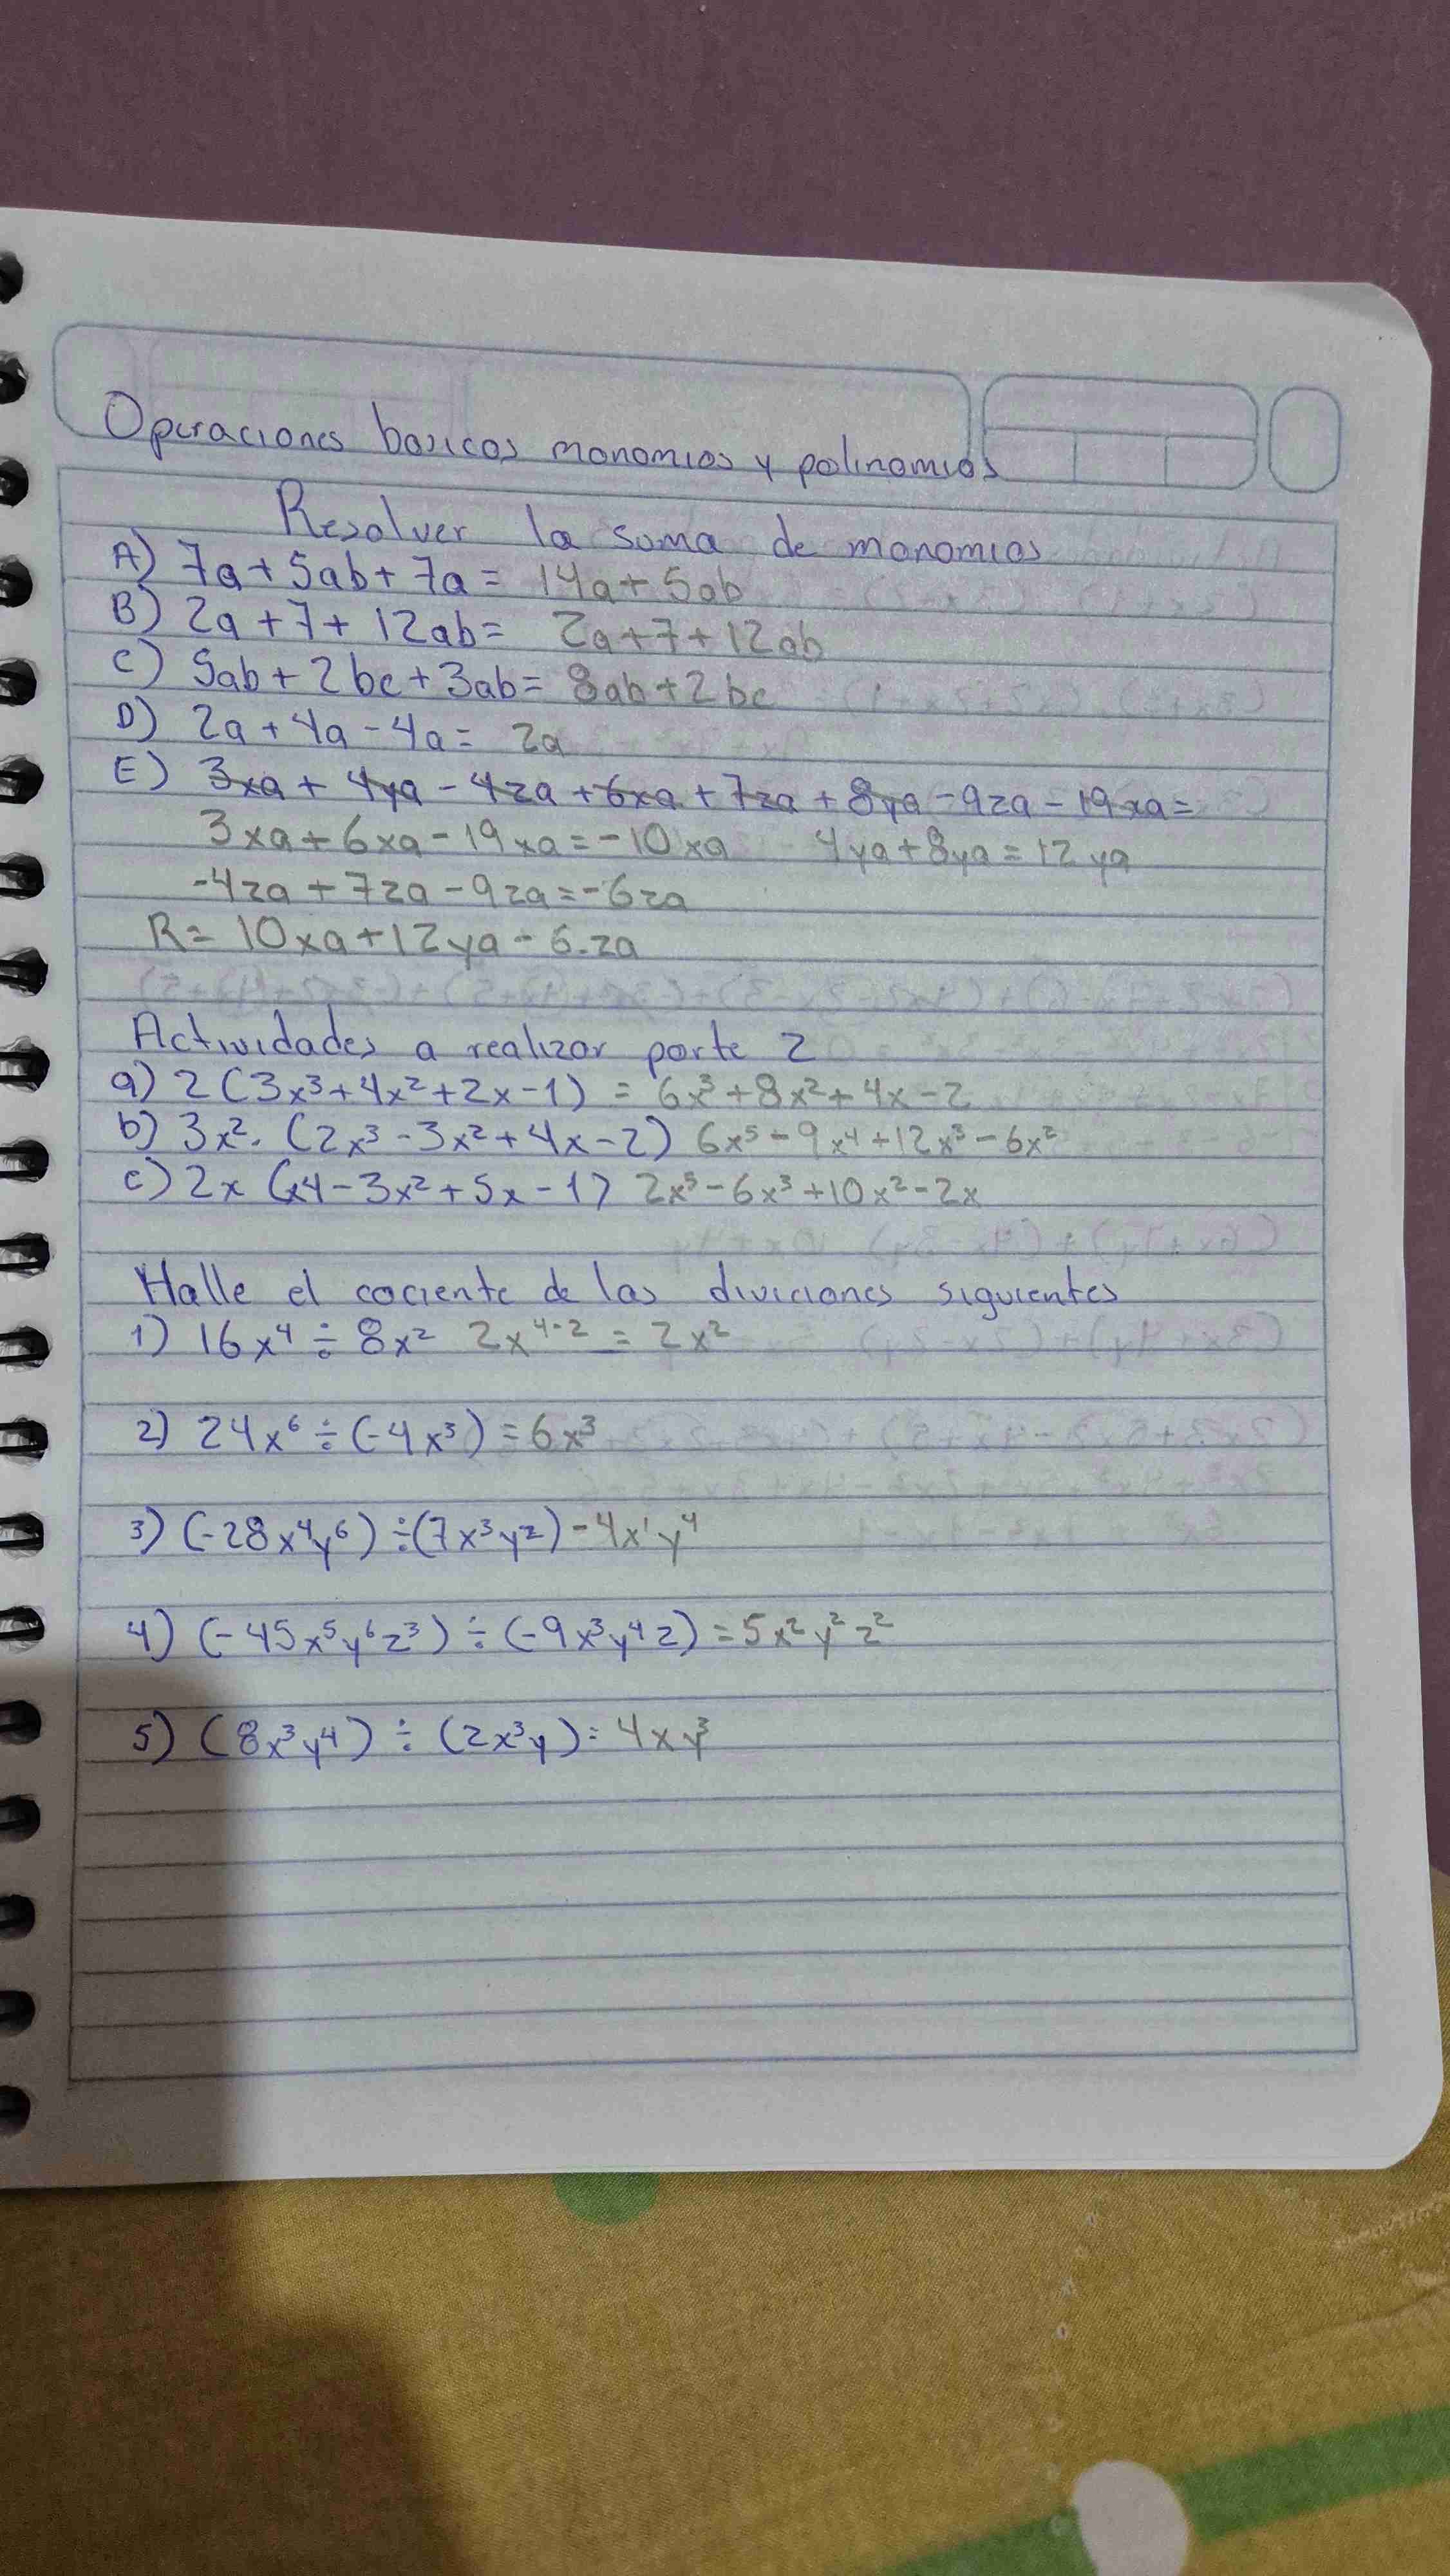 Operaciones basicas monomios y polinomios
Resolver la suma de monomios
A) 7a+5ab+7a= 14a+5ab
B) 2a+7+12ab= 2a+7+12ab
C) 5ab+2bc+3ab= 8ab+2bc
D) 2a+4a-4a= 2a
E) 3xa+4ya-4za+6xa+7za+8ya-9za-19xa=
3xa+6xa-19xa=-10xa 4ya+8ya=12ya
-4za+7za-9za=-6za
R= 10xa+12ya-6.za
Actividades a realizar parte 2
a) 2(3x³+4x²+2x-1) = 6x³+8x²+4x-2
b) 3x². (2x³-3x²+4x-2) 6x⁵-9x⁴+12x³-6x²
c) 2x (x4-3x²+5x-1) 2x⁵-6x³+10x²-2x
Halle el cociente de las diviciones siguientes
1) 16x⁴÷8x² 2x⁴⁻² = 2x²
2) 24x⁶÷(-4x³)=6x³
3) (-28x⁴y⁶)÷(7x³y²)-4x¹y⁴
4) (-45x⁵y⁶z³)÷(-9x³y⁴z)=5x²y²z²
5) (8x³y⁴)÷(2x³y)=4xy³